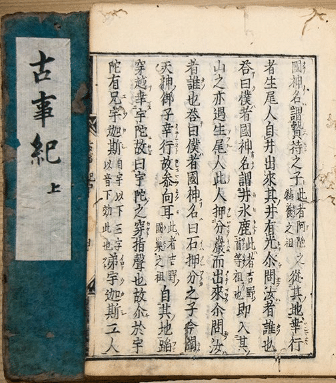 國神名謂贄持之子此者阿陀之鵜養之祖從其地幸行
者生尾人自井出來其井有光尒問汝者誰也
荅曰僕者國神名謂井氷鹿此者吉野首等祖也即入其
山之亦遇生尾人此人押分巖而出來尒問汝
者誰也荅曰僕者國神名曰石押分之子今聞
天神御子幸行故參向耳此者吉野國巢之祖自其地蹈
穿越幸宇陀故曰宇陀之穿指聲也故尒於宇
陀有兄宇迦斯自宇以下三字以音下効此也弟宇迦斯二人
古事紀 上